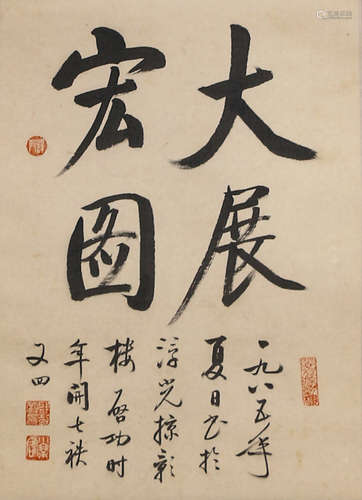 大展
宏图
一九八五年
夏日书于
浮光掠影
楼启功时
年开七袂
又四